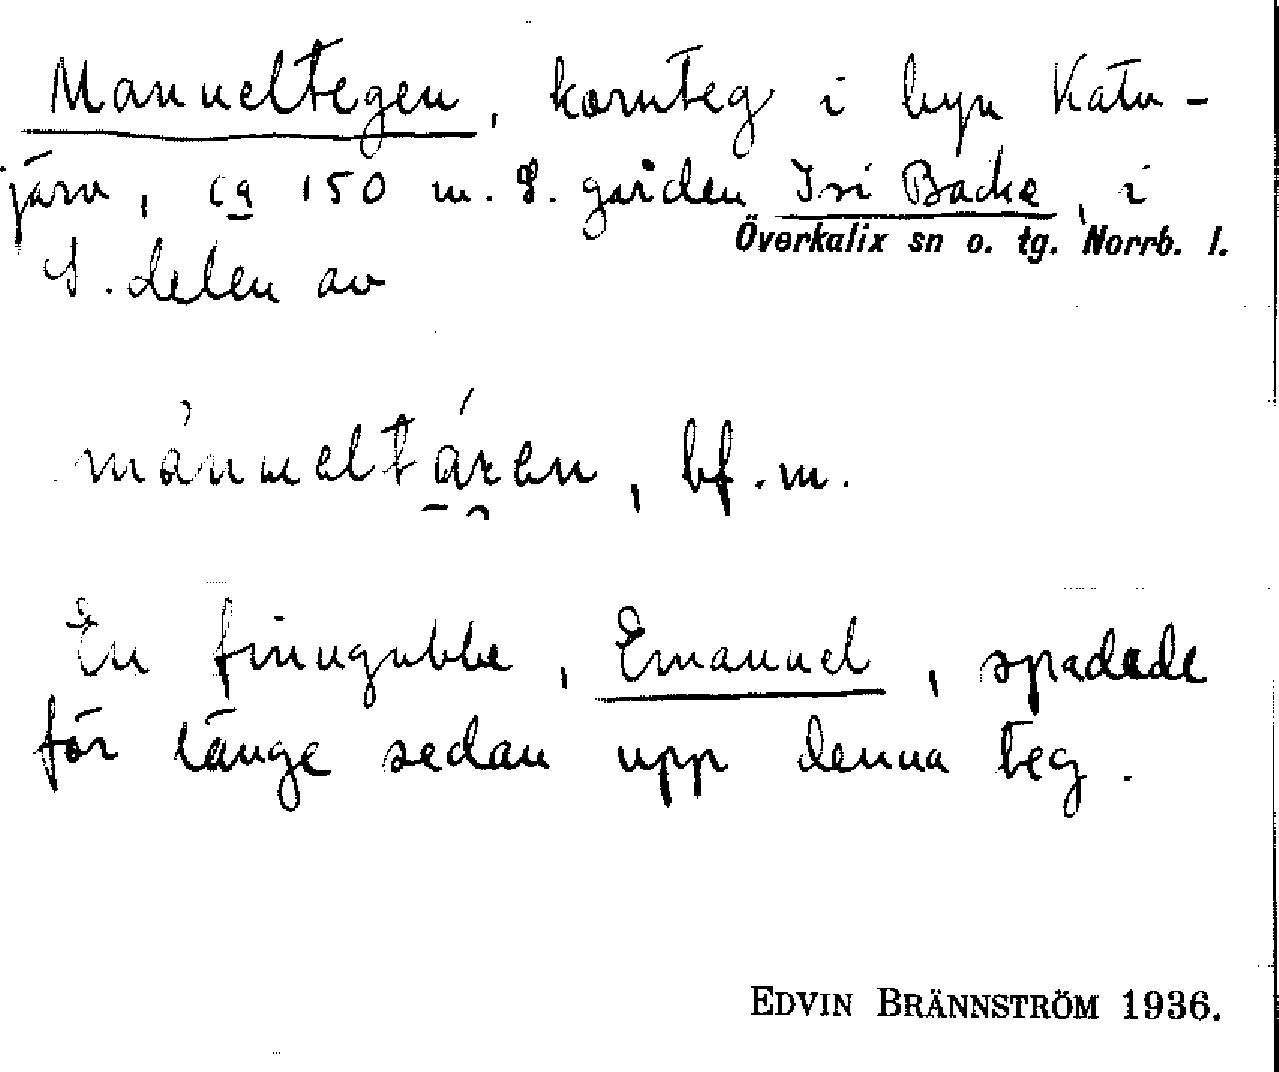 Manueltegen, kornteg i byn Katu-
järv, ca 150 m. S. gården Isi Backe, i
Överkalix sn o. tg. Norrb. l.
S. delen av
mánueltáren, bf. m.
En finngubbe, Emanuel, spadade
för länge sedan upp denna teg.
EDVIN BRÄNNSTRÖM 1936.